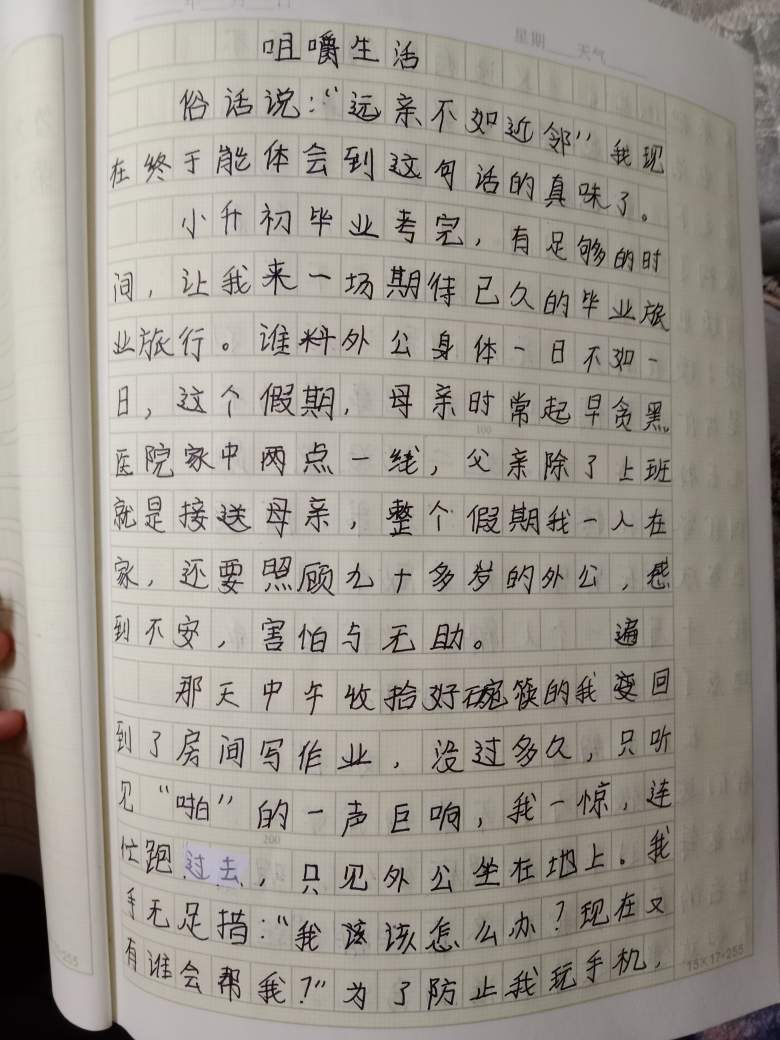 星期 天气
咀嚼生活
俗话说：“远亲不如近邻”我现
在终于能体会到这句话的真味了。
小升初毕业考完，有足够的时
间，让我来一场期待已久的毕业旅
业旅行。谁料外公身体一日不如一
日，这个假期，母亲时常起早贪黑
医院家中两点一线，父亲除了上班
就是接送母亲，整个假期我一人在
家，还要照顾九十多岁的外公，感
到不安，害怕与无助。 遍
那天中午收拾好碗筷的我变回
到了房间写作业，没过多久，只听
见“啪”的一声巨响，我一惊，连
忙跑过去，只见外公坐在地上。我
手无足措：“我该该怎么办？现在又
有谁会帮我？”为了防止我玩手机，
15×17=255